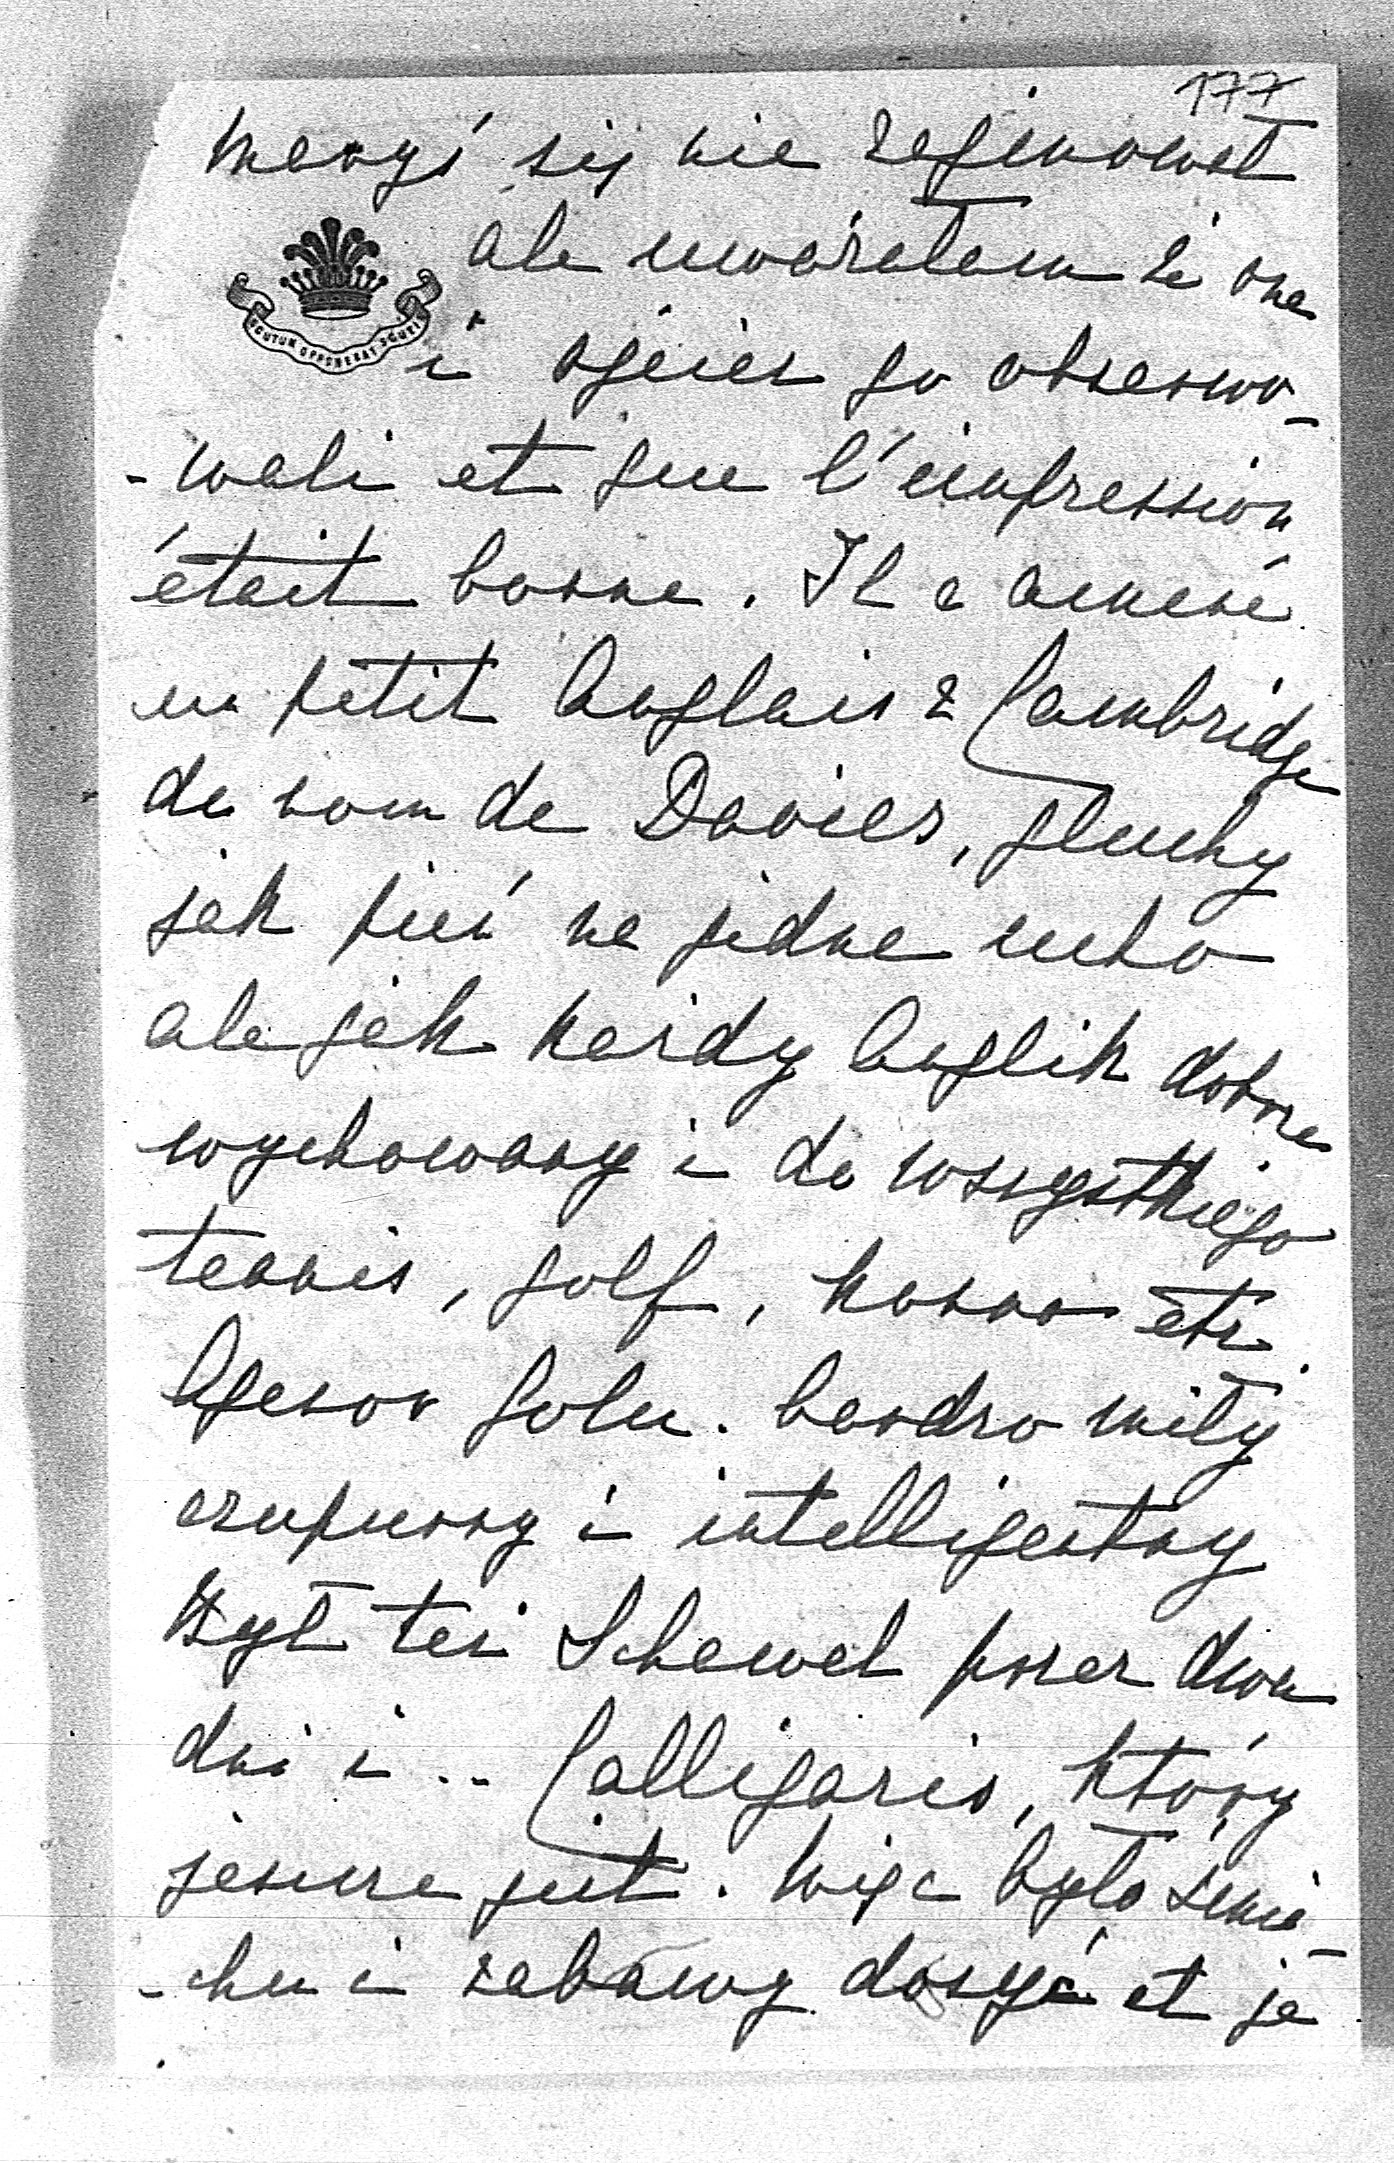 177
się nie zaginował
ale uważałam że one
SCUTUM OPPONEBAT SCUTIS
i ojciec go obserwo-
-wali et que l'impression
était bonne. Il a amené
un petit Anglais z Cambridge
du nom de Davies, gluchy
jak pień na jedne ucho
ale jak każdy Anglik dobrze
wychowany i do wszystkiego
tennis, golf, konno etc.
Ageron Golu. bardzo miły
uczynny i intelligentny
Był też Schewel przez dwa
dni i .. Calligaris, który
jeszcze jest. Więc było śmie-
-chu i zabawy dosyć et je